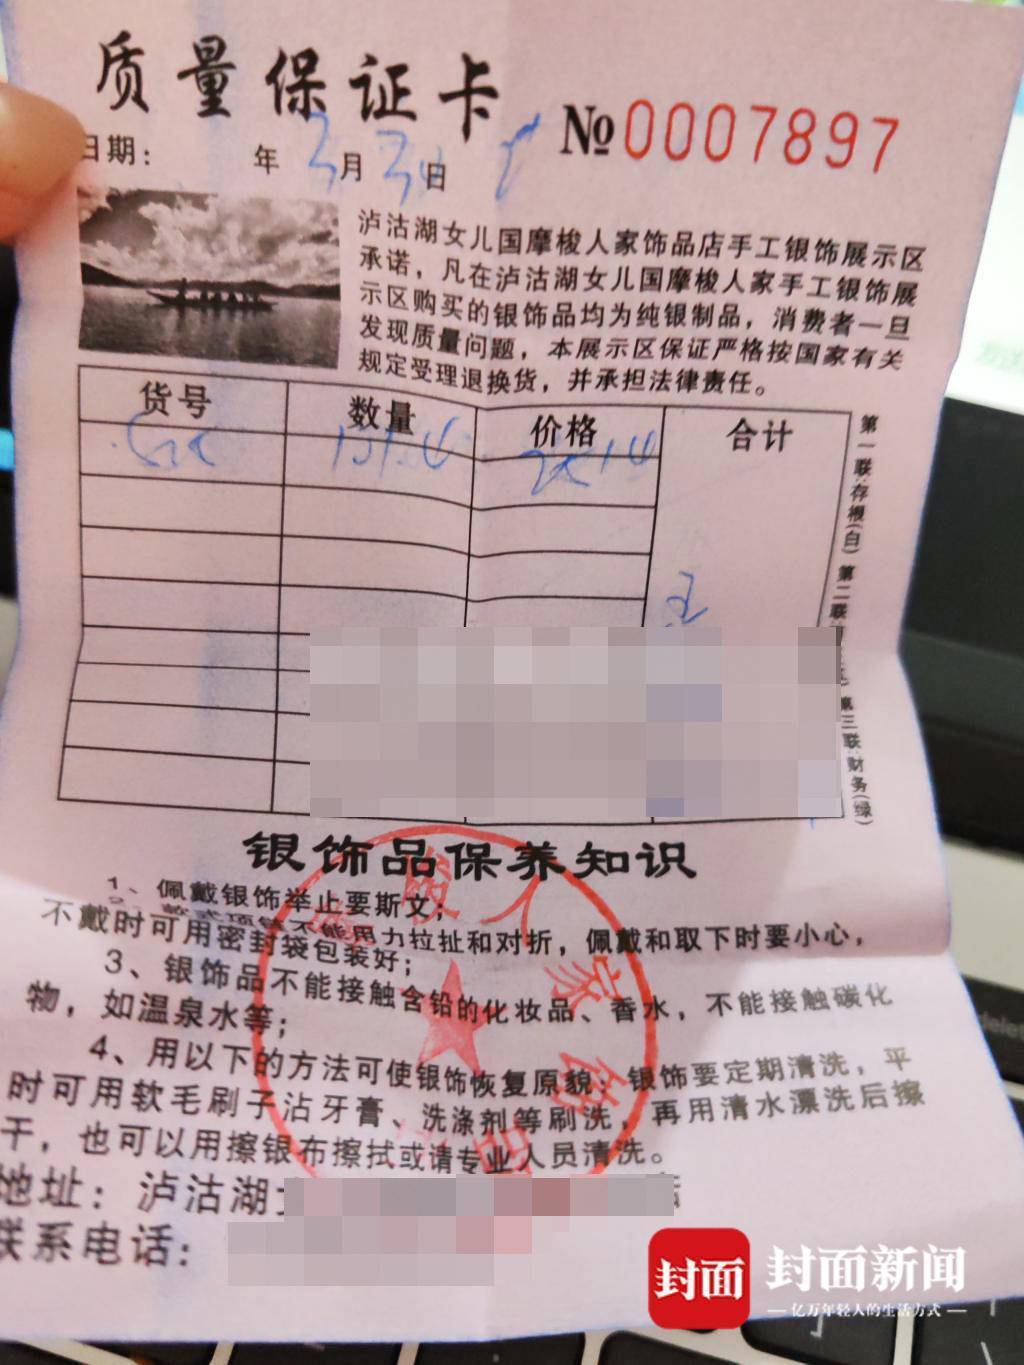 质量保证卡
№0007897
日期： 年 3月 日
泸沽湖女儿国摩梭人家饰品店手工银饰展示区
承诺，凡在泸沽湖女儿国摩梭人家手工银饰展
示区购买的银饰品均为纯银制品，消费者一旦
发现质量问题，本展示区保证严格按国家有关
规定受理退换货，并承担法律责任。
货号 数量 价格 合计
第一联:存根(白) 第二联 第三联:财务(绿)
银饰品保养知识
1、佩戴银饰举止要斯文；
不能用力拉扯和对折，佩戴和取下时要小心，
不戴时可用密封袋包装好；
3、银饰品不能接触含铅的化妆品、香水，不能接触碳化
物，如温泉水等；
4、用以下的方法可使银饰恢复原貌：银饰要定期清洗，平
时可用软毛刷子沾牙膏、洗涤剂等刷洗，再用清水漂洗后擦
干，也可以用擦银布擦拭或请专业人员清洗。
地址：泸沽湖
联系电话：
梭人家饰
delete
封面
封面新闻
亿万年轻人的生活方式